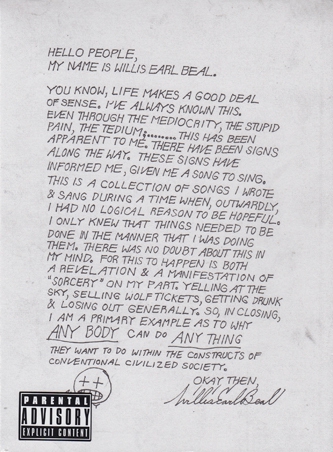 HELLO PEOPLE,
MY NAME IS WILLIS EARL BEAL.
YOU KNOW, LIFE MAKES A GOOD DEAL
OF SENSE. I'VE ALWAYS KNOWN THIS.
EVEN THROUGH THE MEDIOCRITY, THE STUPID
PAIN, THE TEDIUM,........THIS HAS BEEN
APPARENT TO ME. THERE HAVE BEEN SIGNS
ALONG THE WAY. THESE SIGNS HAVE
INFORMED ME, GIVEN ME A SONG TO SING.
THIS IS A COLLECTION OF SONGS I WROTE
& SANG DURING A TIME WHEN, OUTWARDLY,
I HAD NO LOGICAL REASON TO BE HOPEFUL.
I ONLY KNEW THAT THINGS NEEDED TO BE
DONE IN THE MANNER THAT I WAS DOING
THEM. THERE WAS NO DOUBT ABOUT THIS IN
MY MIND. FOR THIS TO HAPPEN IS BOTH
A REVELATION & A MANIFESTATION OF
"SORCERY" ON MY PART. YELLING AT THE
SKY, SELLING WOLF TICKETS, GETTING DRUNK
& LOSING OUT GENERALLY. SO, IN CLOSING,
I AM A PRIMARY EXAMPLE AS TO WHY
ANY BODY CAN DO ANY THING
THEY WANT TO DO WITHIN THE CONSTRUCTS OF
CONVENTIONAL CIVILIZED SOCIETY.
OKAY THEN,
Willis Earl Beal
PARENTAL
ADVISORY
EXPLICIT CONTENT